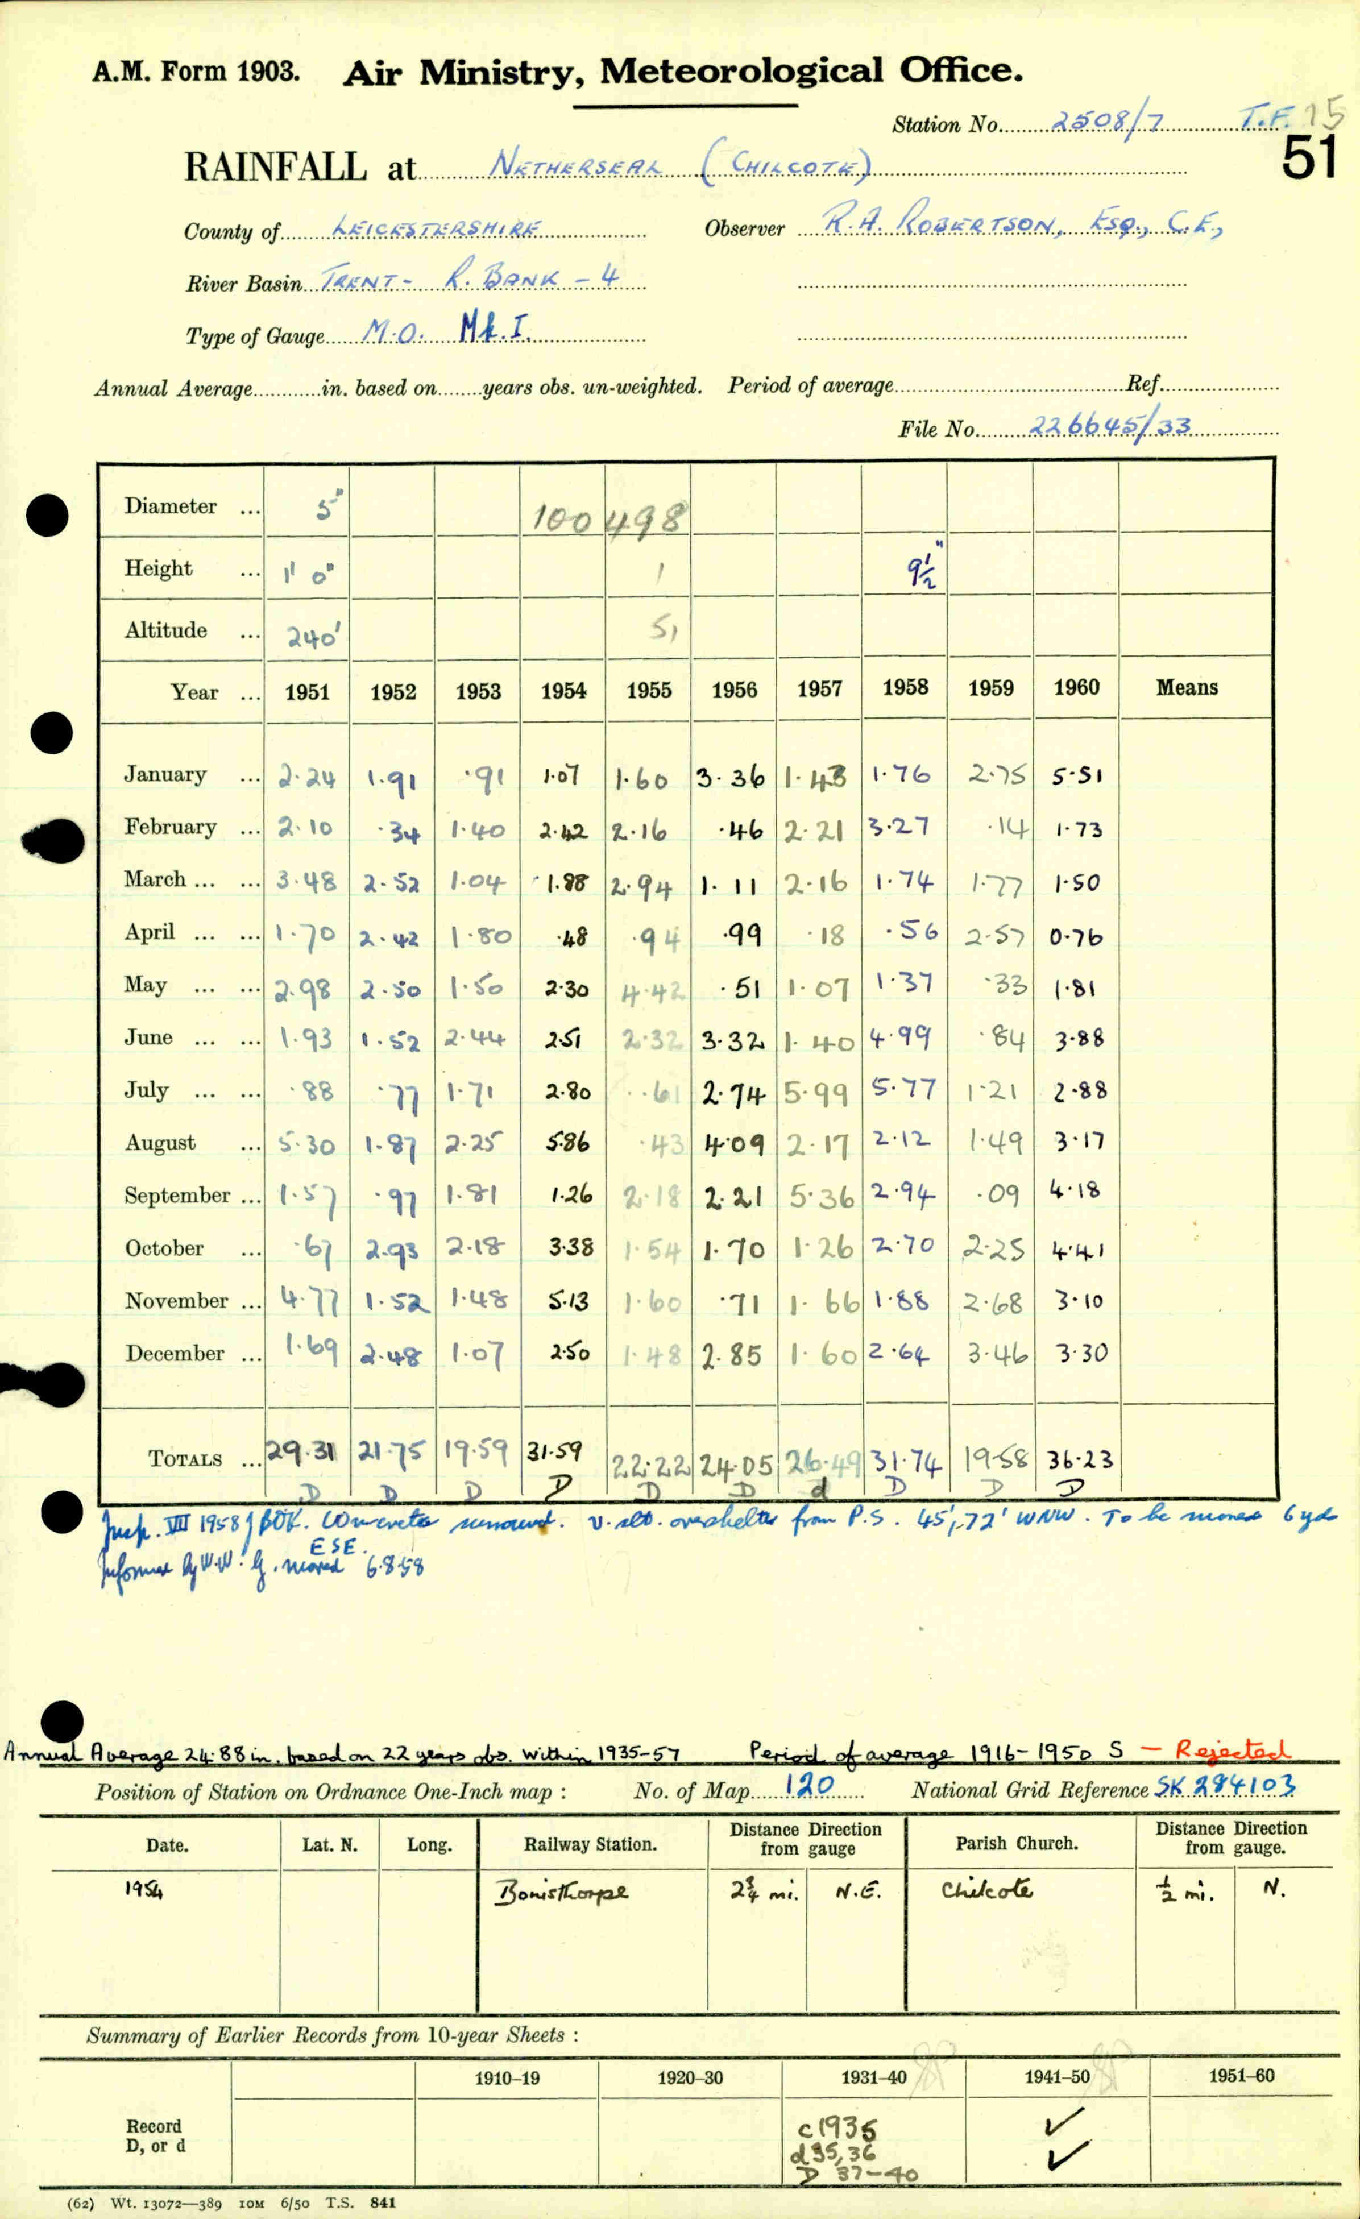 A.M. Form 1903. Air Ministry, Meteorological Office.
Station No. 2508/7 T.F. 15
51
RAINFALL at NETHERSEAL (CHILCOTE)
County of LEICESTERSHIRE Observer R.A. ROBERTSON, ESQ., C.E.,
River Basin TRENT - R. BANK - 4
Type of Gauge M.O. Mk. I.
Annual Average in. based on years obs. un-weighted. Period of average Ref.
File No. 226645/33
Diameter ... 5" 100498
Height ... 1' 0" 1 9½"
Altitude ... 240' 51
Year ... 1951 1952 1953 1954 1955 1956 1957 1958 1959 1960 Means
January ... 2.24 1.91 .91 1.07 1.60 3.36 1.43 1.76 2.75 5.51
February ... 2.10 .34 1.40 2.42 2.16 .46 2.21 3.27 .14 1.73
March ... ... 3.48 2.52 1.04 1.88 2.94 1.11 2.16 1.74 1.77 1.50
April ... ... 1.70 2.42 1.80 .48 .94 .99 .18 .56 2.57 0.76
May ... ... 2.98 2.50 1.50 2.30 4.42 .51 1.07 1.37 .33 1.81
June ... ... 1.93 1.52 2.44 2.51 2.32 3.32 1.40 4.99 .84 3.88
July ... ... .88 .77 1.71 2.80 .61 2.74 5.99 5.77 1.21 2.88
August ... 5.30 1.87 2.25 5.86 .43 4.09 2.17 2.12 1.49 3.17
September ... 1.57 .97 1.81 1.26 2.18 2.21 5.36 2.94 .09 4.18
October ... .67 2.93 2.18 3.38 1.54 1.70 1.26 2.70 2.25 4.41
November ... 4.77 1.52 1.48 5.13 1.60 .71 1.66 1.88 2.68 3.10
December ... 1.69 2.48 1.07 2.50 1.48 2.85 1.60 2.64 3.46 3.30
TOTALS ... 29.31 21.75 19.59 31.59 22.22 24.05 26.49 31.74 19.58 36.23
D D D D D D d D D D
Insp. VII 1958 concrete surround. v. slt. overshelter from P.S. 45', 72' WNW. To be moved 6 yds
ESE.
Informed by W.W. moved 6.8.58
Annual Average 24.88 in. based on 22 years obs. within 1935-57 Period of average 1916-1950 S - Rejected
Position of Station on Ordnance One-Inch map : No. of Map 120 National Grid Reference SK 284103
Date. Lat. N. Long. Railway Station. Distance from Direction gauge Parish Church. Distance from Direction gauge.
1954 Donisthorpe 2¾ mi. N.E. Chilcote ½ mi. N.
Summary of Earlier Records from 10-year Sheets :
1910–19 1920–30 1931–40 1941–50 1951–60
Record
D, or d
c1935 ✓
d35,36 ✓
D 37-40
(62) Wt. 13072—389 10M 6/50 T.S. 841